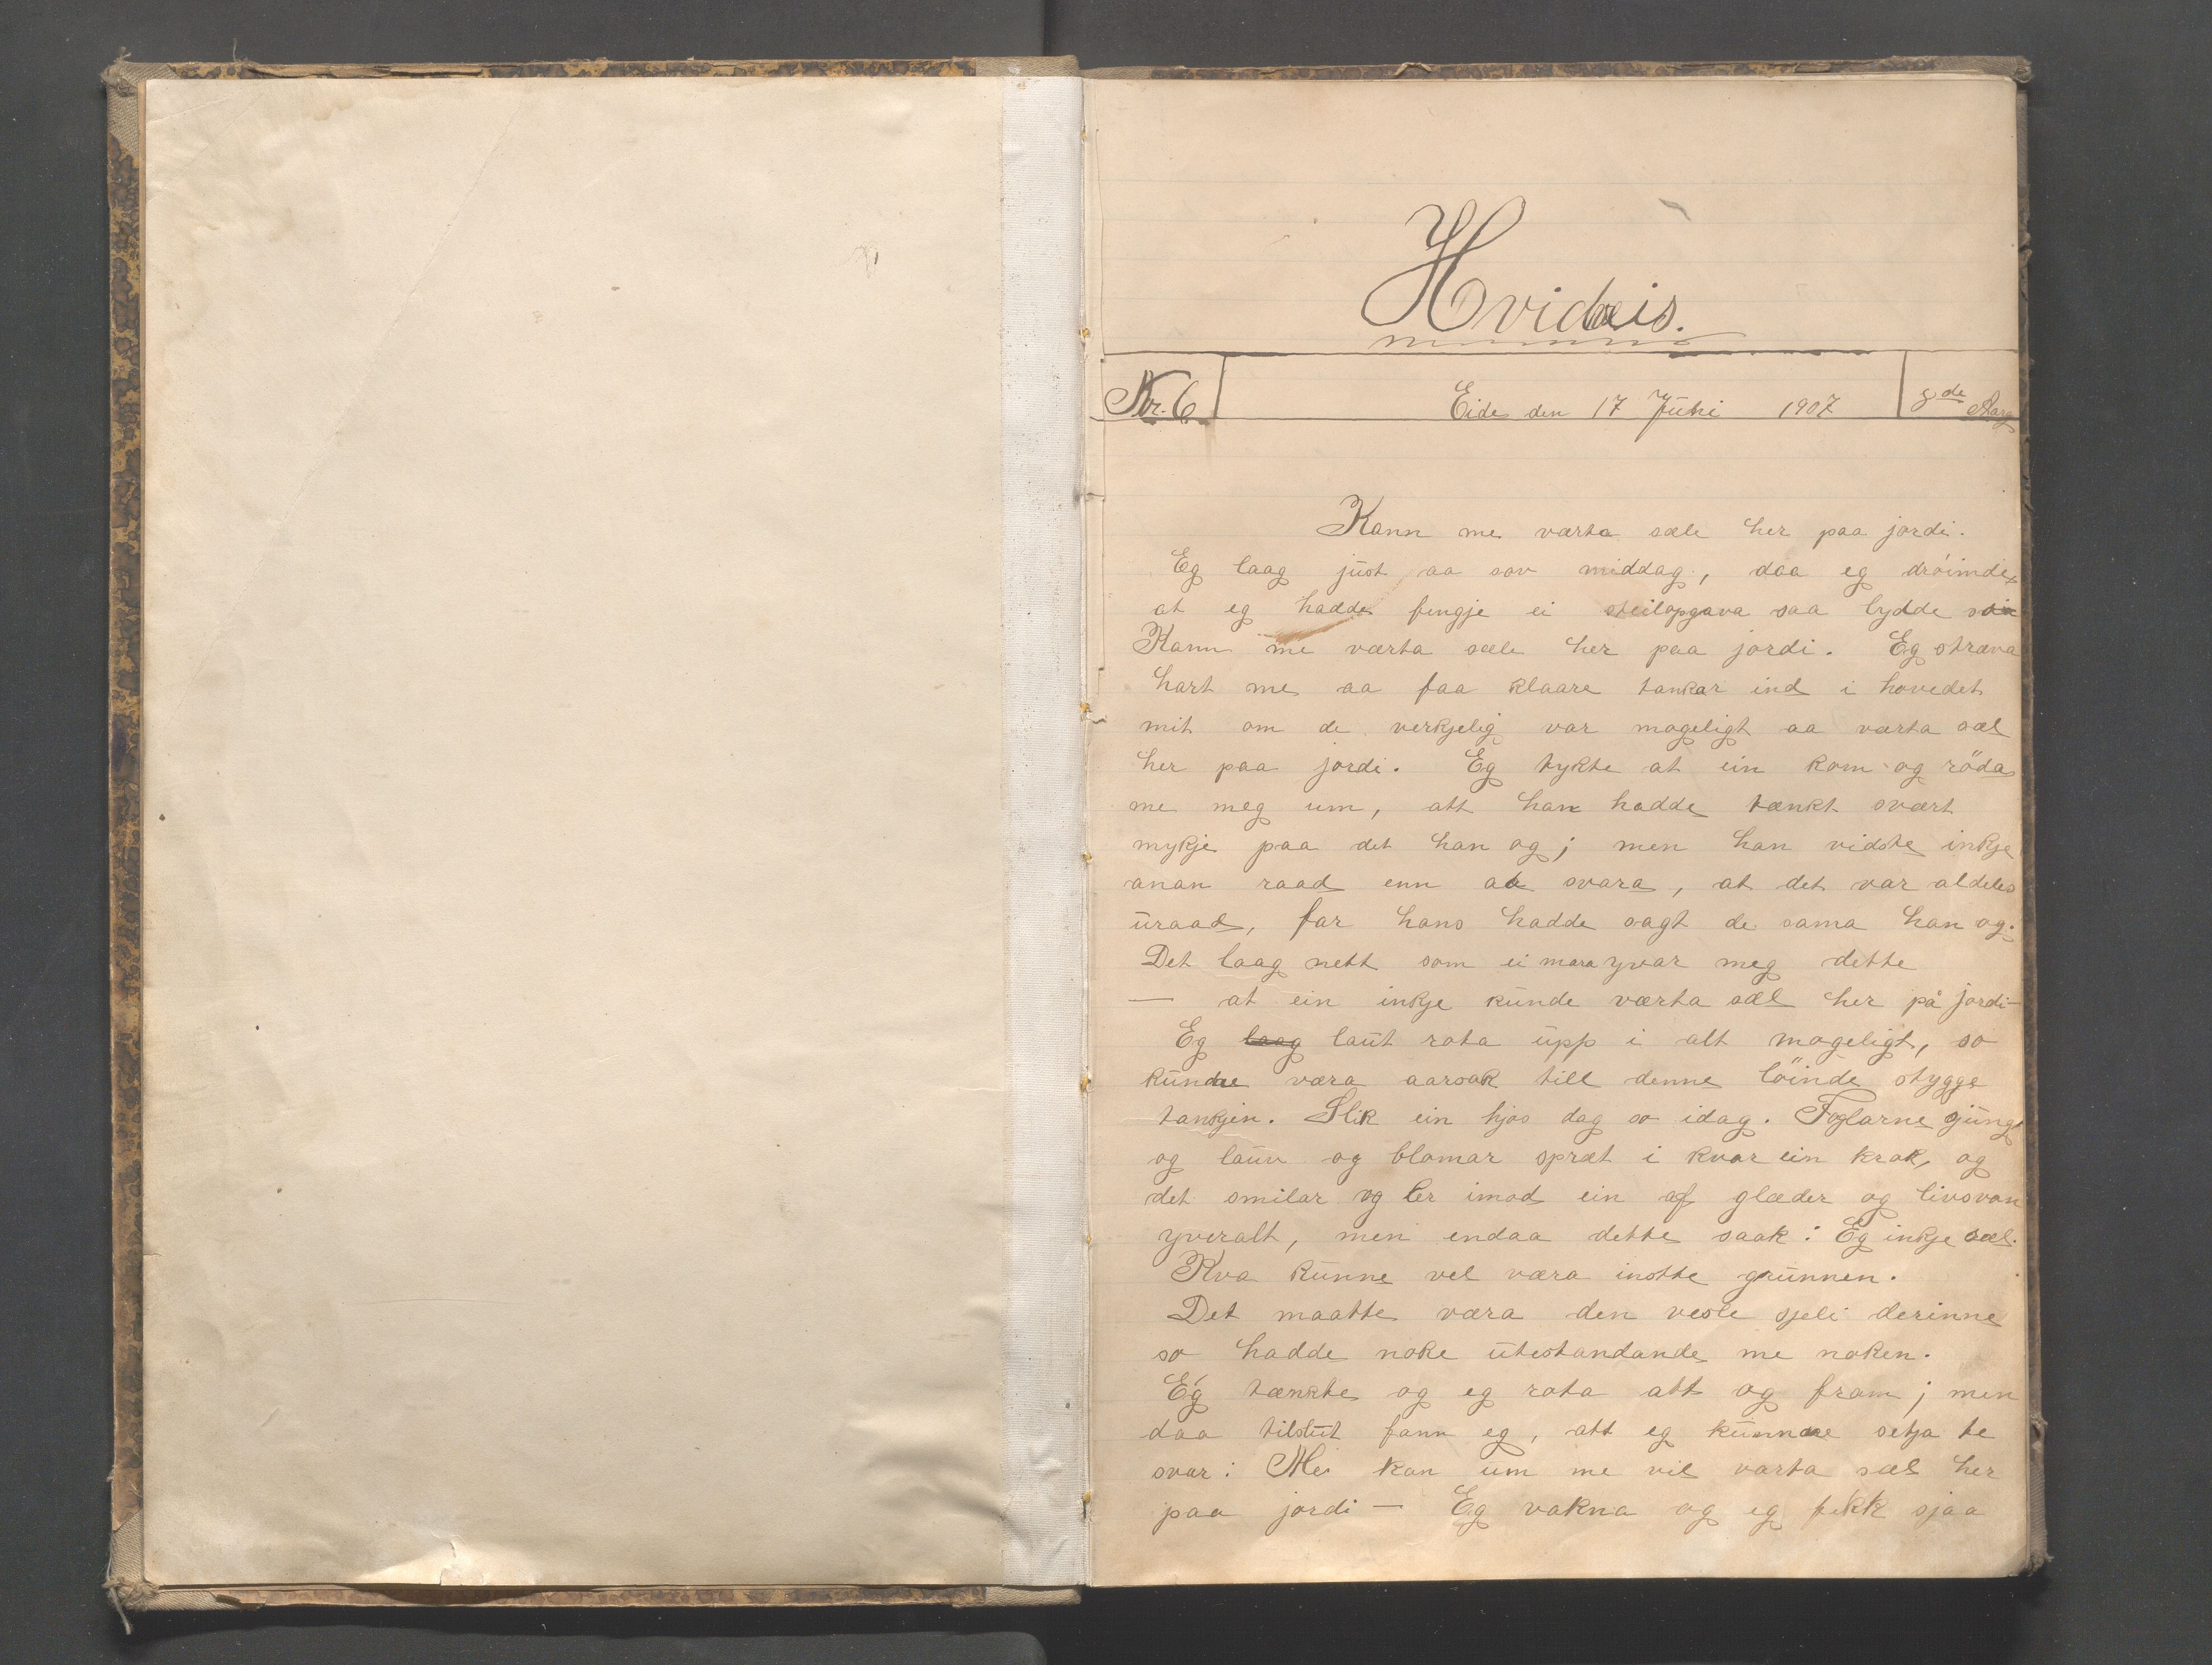 Hvidveis.
Nr. 6
Eide den 17 Juni 1907
8de Aarg
Kann me værta sæle her paa jordi.
Eg laag just aa sov middag, daa eg dröimde,
at eg hadde fengje ei steilopgava saa lydde
Kann me værta sæle her paa jordi. Eg stræva
hart me aa faa klaare tankar ind i hovedet
mit om de verkjelig var mogeligt aa værta sæl
her paa jordi. Eg tykte at ein kom og röda
me meg um, att han hadde tænkt svært
mykje paa det han og; men han vidste inkje
anan raad enn aa svara, at det var aldeles
uraad, far hans hadde sagt de sama han og.
Det laag nett som ei mara yvar meg dette
— at ein inkje kunde værta sæl her på jordi—
Eg laag laut rota upp i alt mogeligt, so
kundae væra aarsak till denne löinde stygge
tankjen. Slik ein hjos dag so idag. Foglarne sjung
og lauv og blomar spræt i kvar ein krok, og
det smilar og ler imod ein af glæder og livsvon
yveralt, men endaa dette saak: Eg inkje sæl.
Kva kunne vel væra inste grunnen.
Det maatte væra den vesle sjeli derinne
so hadde noke utestandande me noken.
Eg tænkte og eg rota att og fram; men
daa tilslut fann eg, att eg kunnae setja te
svar: Me kan um me vil varta sæl her
paa jordi — Eg vakna og eg fekk sjaa